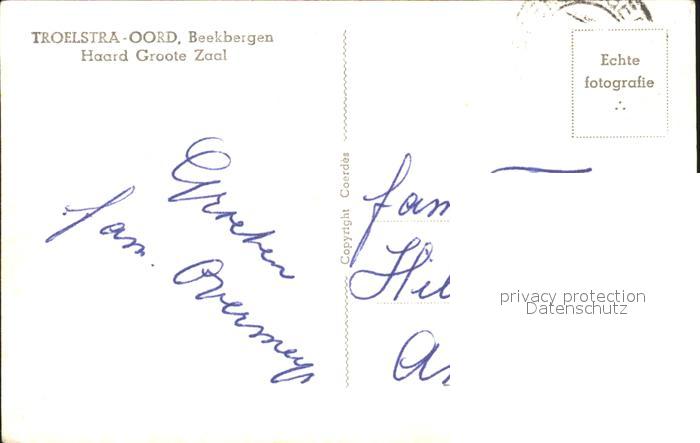 TROELSTRA-OORD, Beekbergen
Haard Groote Zaal
Echte
fotografie
Groeten
fam. Overmeyer
Copyright Coerdés
fam
Hil
A
privacy protection
Datenschutz